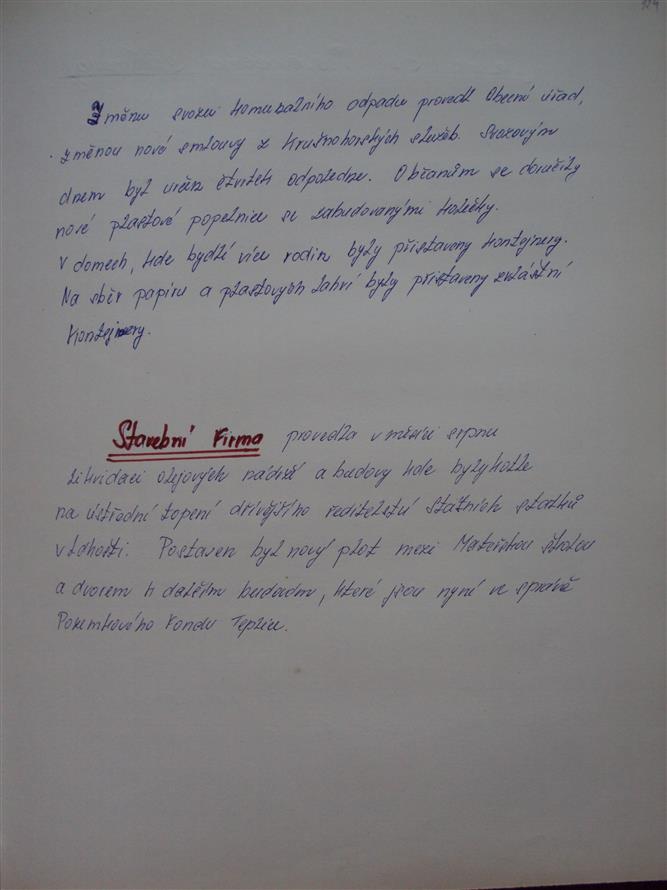 Změnu svozu komunálního odpadu provedl Obecní úřad,
změnou nové smlouvy z Krušnohorských služeb. Svozovým
dnem byl určen čtvrtek odpoledne. Občanům se doručily
nové plastové popelnice se zabudovanými kolečky.
V domech, kde bydlí více rodin byly přistaveny kontejnery.
Na sběr papíru a plastových lahví byly přistaveny zvláštní
kontejnery.
Stavební Firma provedla v měsíci srpnu
likvidaci olejových nádrží a budovy kde byly kotle
na ústřední topení dřívějšího ředitelství Státních statků
v Lahošti. Postaven byl nový plot mezi Mateřskou školou
a dvorem k dalším budovám, které jsou nyní ve správě
Pozemkového Fondu Teplice.